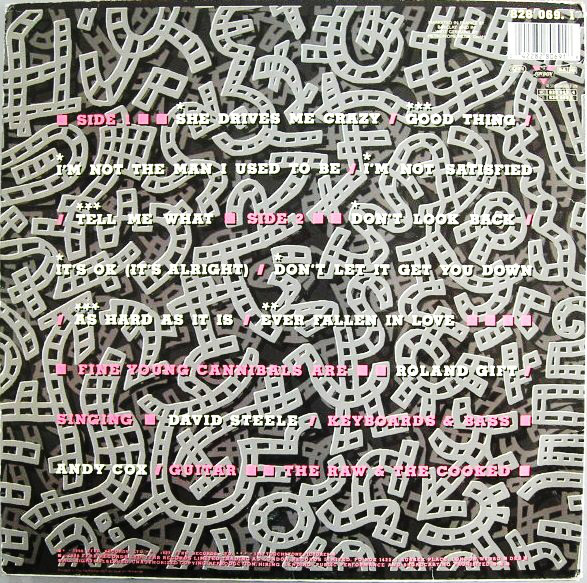 828 069. 1
■ SIDE 1 ■ ■ *SHE DRIVES ME CRAZY / ***GOOD THING /
*I'M NOT THE MAN I USED TO BE / *I'M NOT SATISFIED
/ ***TELL ME WHAT ■ SIDE 2 ■ ■ *DON'T LOOK BACK /
*IT'S OK (IT'S ALRIGHT) / *DON'T LET IT GET YOU DOWN
/ ***AS HARD AS IT IS / **EVER FALLEN IN LOVE ■ ■ ■ ■
■ FINE YOUNG CANNIBALS ARE ■ ■ ROLAND GIFT /
SINGING ■ DAVID STEELE / KEYBOARDS & BASS ■
ANDY COX / GUITAR ■ ■ THE RAW & THE COOKED ■